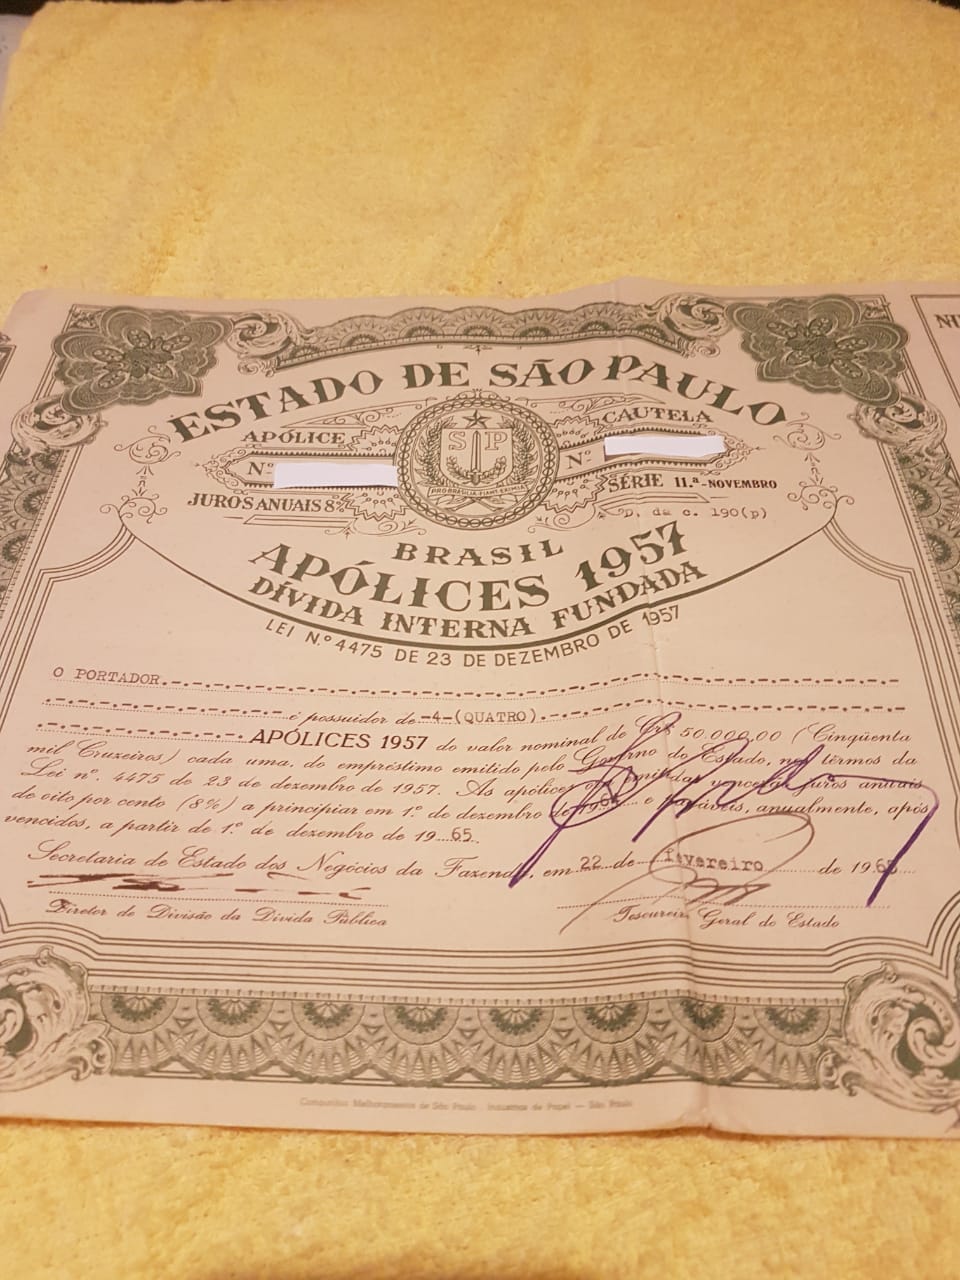 ESTADO DE SÃO PAULO
APÓLICE
Nº
JUROS ANUAIS 8%
SP
PRO BRASILIA FIANT EXIMIA
CAUTELA
Nº
SÉRIE 11.ª - NOVEMBRO
D. da c. 190(p)
BRASIL
APÓLICES 1957
DÍVIDA INTERNA FUNDADA
LEI N.º 4475 DE 23 DE DEZEMBRO DE 1957
O PORTADOR
é possuidor de -4-(QUATRO).
APÓLICES 1957 do valor nominal de Cr$ 50.000,00 (Cinqüenta
mil Cruzeiros) cada uma, do empréstimo emitido pelo Govêrno do Estado, nos têrmos da
Lei nº. 4475 de 23 de dezembro de 1957. As apólices emitidas vencerão juros anuais
de oito por cento (8%) a principiar em 1º. de dezembro de e pagáveis, anualmente, após
vencidos, a partir de 1º. de dezembro de 1965.
Secretaria de Estado dos Negócios da Fazenda, em 22 de fevereiro de 196
Diretor de Divisão da Dívida Pública
Tesoureiro Geral do Estado
Companhia Melhoramentos de São Paulo Indústrias de Papel — São Paulo